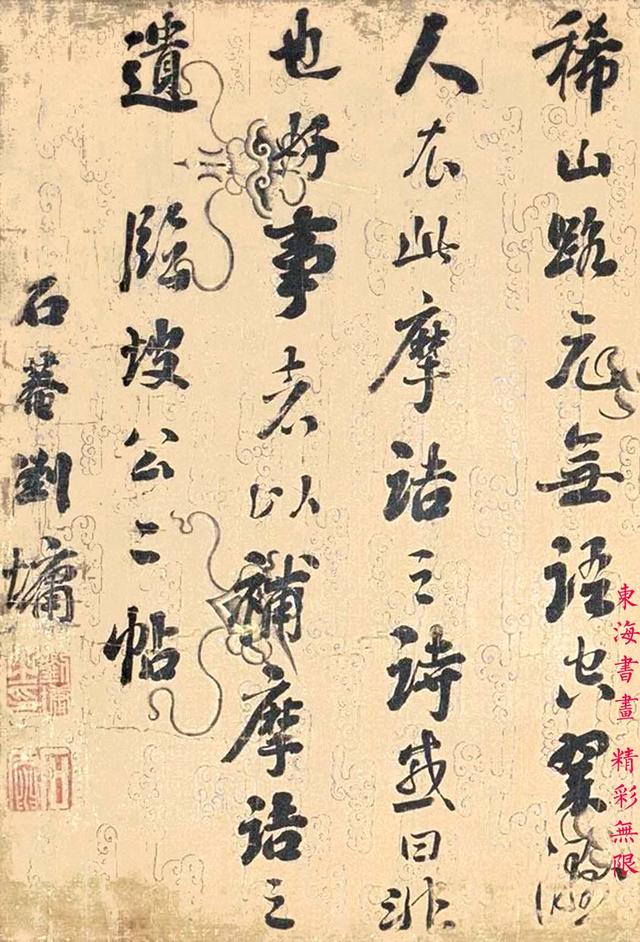 稀山路元無語空翠濕
人衣此摩詰之詩或曰非
也好事者以補摩詰之
遺 臨坡公二帖
石菴劉墉
東海書畫 精彩無限
(KSO)